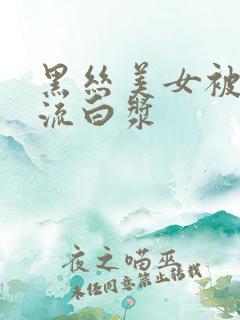 黑丝美女被
流白浆
夜之喵巫
未经同意禁止转载